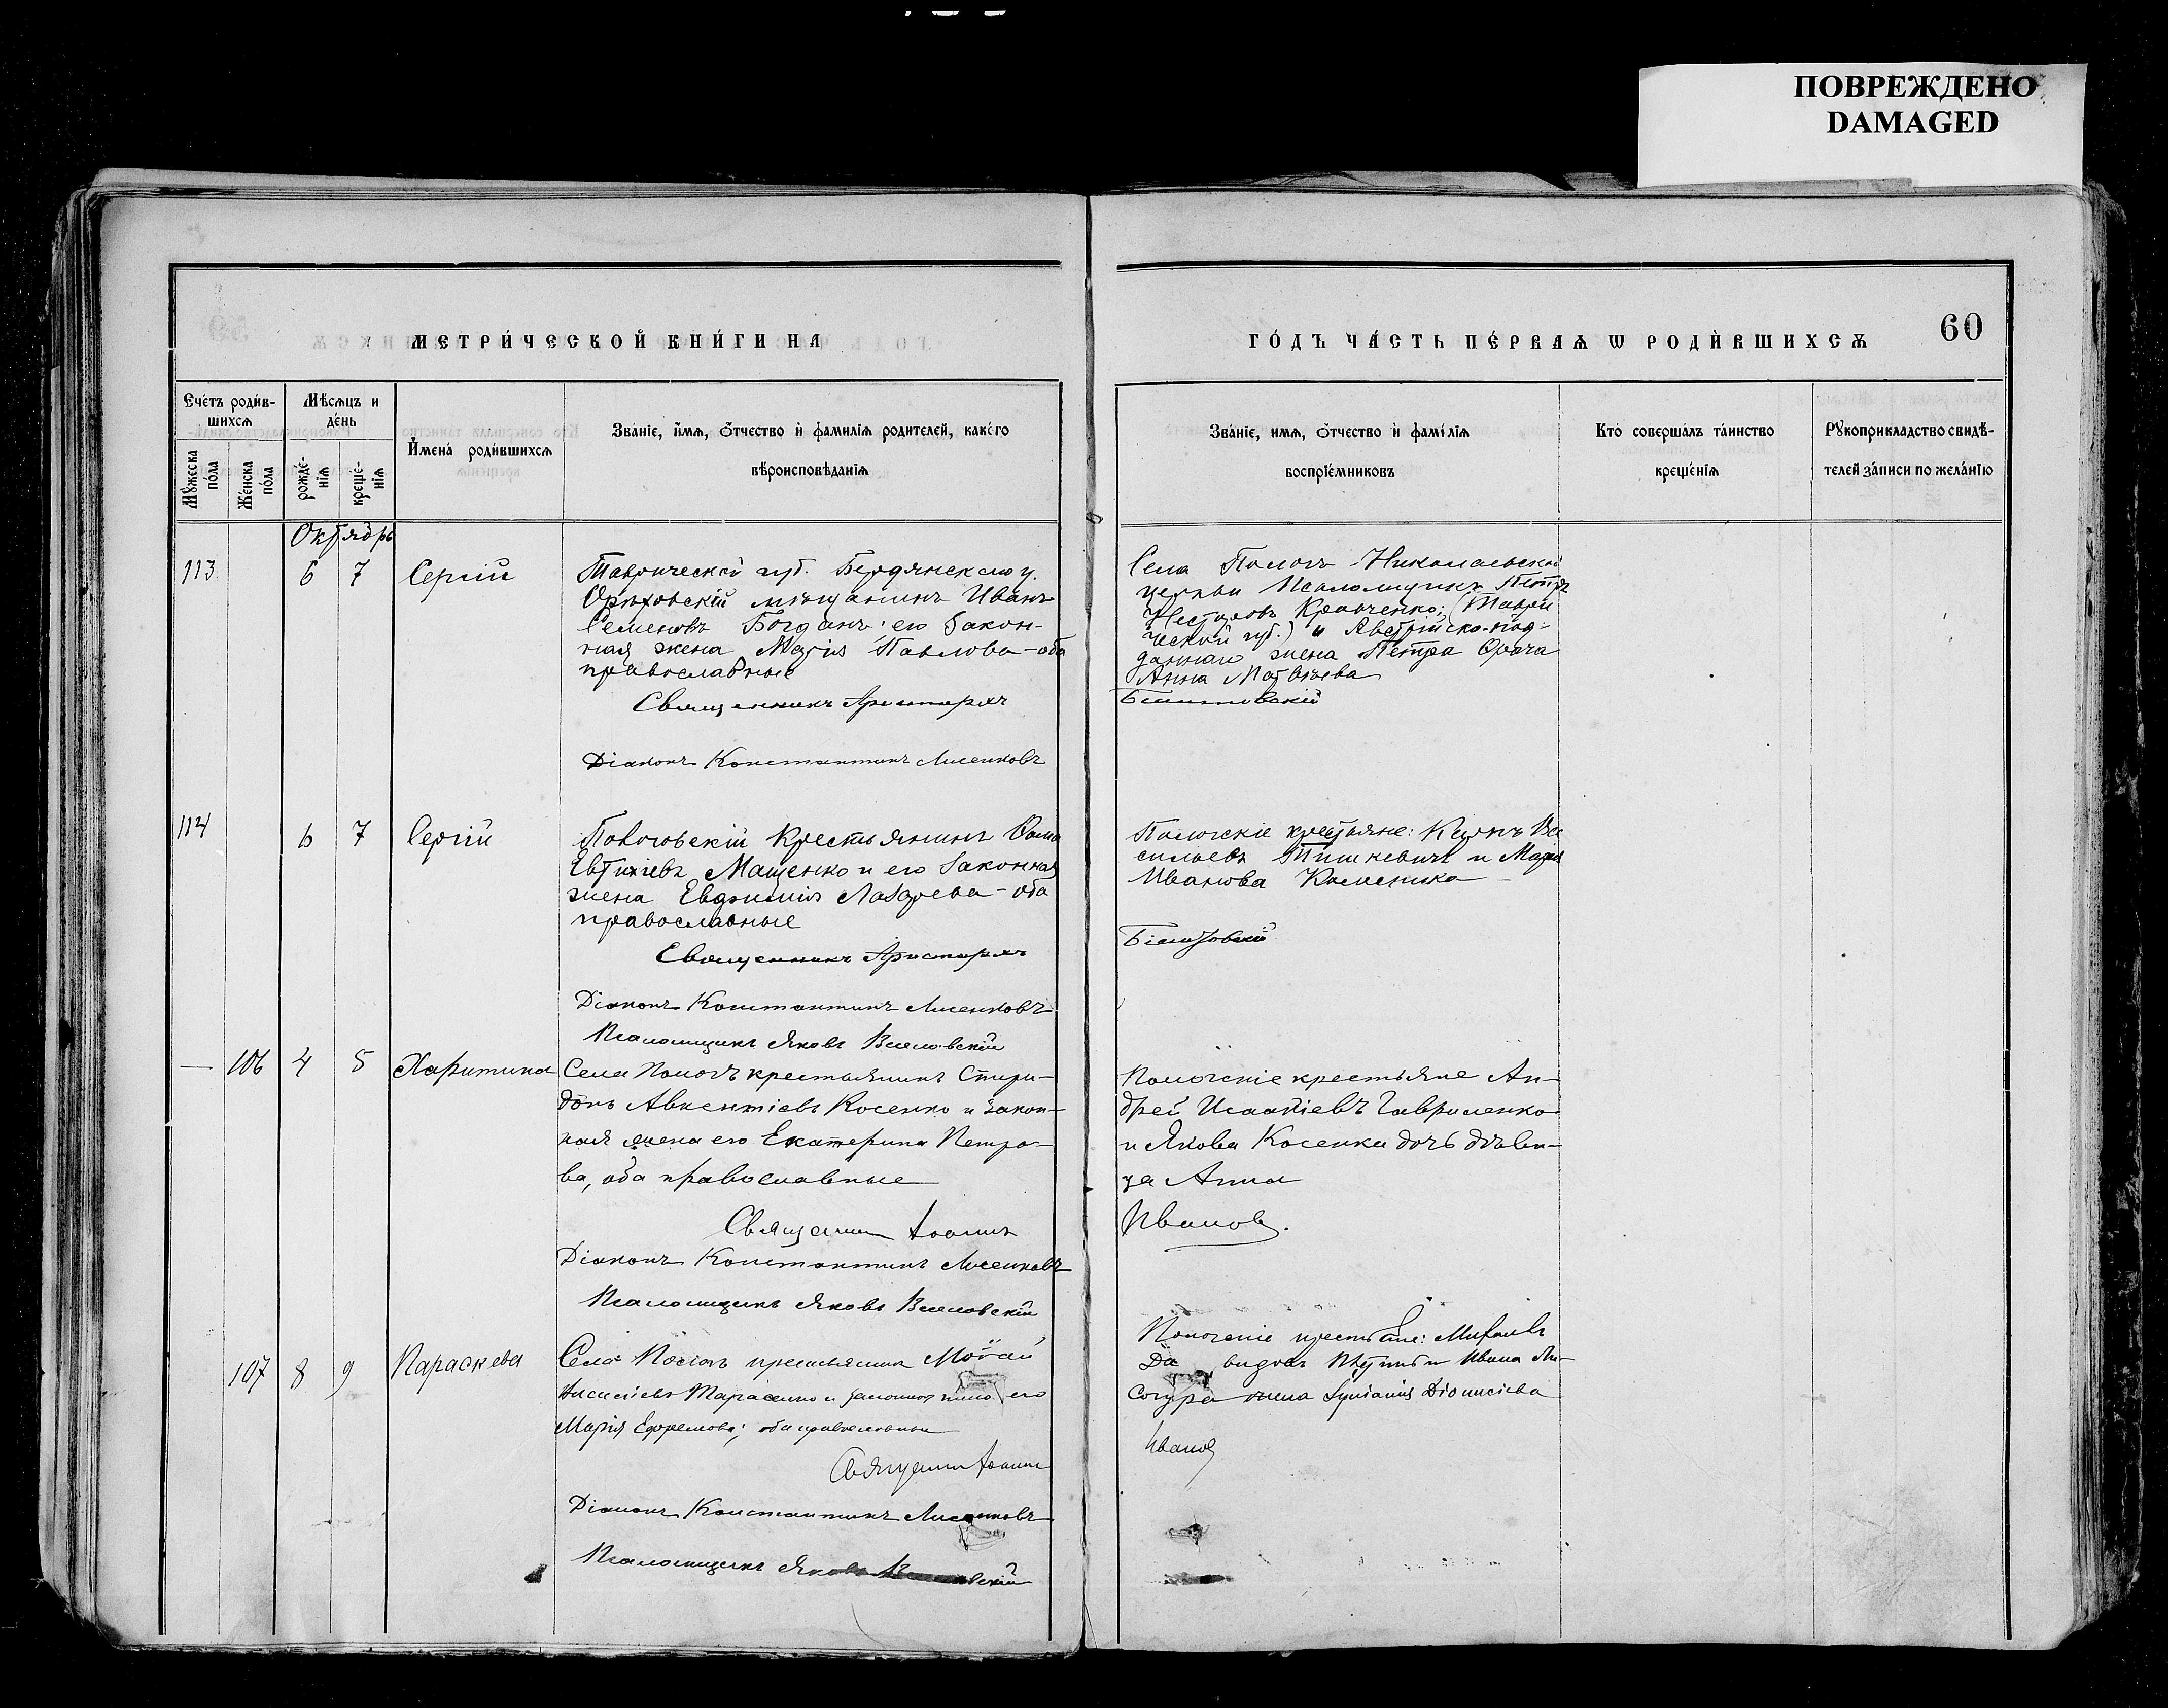 ПОВРЕЖДЕНО
DAMAGED
МЕТРИ́ЧЕСКОЙ КНИ́ГИ НА
ГО́ДЪ ЧА́СТЬ ПЕ́РВАѦ Ѡ РОДИ́ВШИХСѦ
60
Сче́тъ роди́в-
шихсѧ
Мѣ́сѧцъ и
де́нь
Мꙋ́жеска
по́ла
Же́нска
по́ла
рожде́-
нїѧ
креще́-
нїѧ
И҆мена̀ роди́вшихсѧ
Зва́нїе, и҆́мѧ, ѻ҆́тчество и҆ фамилїѧ родителей, како́го
вѣроисповѣ́данїѧ
Зва́нїе, имѧ, ѻ҆́тчество и҆ фами́лїѧ
воспрїе́мниковъ
Кто̀ соверша́лъ та́инство
креще́нїѧ
Рꙋкоприкладство свидѣ́-
телей за́писи по жела́нїю
Октябрь
113
6
7
Сергій
Таврической губ. Бердянскаго у.
Орѣховскій мѣщанинъ Иванъ
Семеновъ Богданъ и его закон-
ная жена Марія Павлова - оба
православные
Священникъ Аристархъ
Діаконъ Константинъ Лисенковъ
Села Пологъ Николаевской
церкви Псаломщикъ Петръ
Несторовъ Кравченко; (Таври
ческой губ.) и Австрійско-под-
даннаго жена Петра Орача
Анна Матвѣева
114
6
7
Сергій
Пологовскій Крестьянинъ Фома
Евтихіевъ Мащенко и его законная
жена Евфимія Лазарева - оба
православные
Священникъ Аристархъ
Діаконъ Константинъ Лисенковъ
Псаломщикъ Яковъ
Пологскіе крестьяне: Ва
сильевъ и Марія
Иванова
—
106
4
5
Харитина
Села Пологъ крестьянинъ Спири-
донъ Авксентіевъ Косенко и закон-
ная жена его Екатерина Петро-
ва, оба православные
Іоаннъ
Діаконъ Константинъ Лисенковъ
Псаломщикъ Яковъ
Пологскіе крестьяне Ан-
дрей Исаакіевъ Гавриленко
и Якова Косенка дочь дѣви-
ца Анна
Ивановъ.
107
8
9
Параскева
Села Пологъ крестьянинъ Мойсей
Тарасенко и законная жена его
Марія Ефремова; оба православные
Іоаннъ
Діаконъ Константинъ Лисенковъ
Псаломщикъ Яковъ
Пологскіе крестьяне: Михаилъ
Давидовъ и Ивана Ли-
согора жена Діонисіева
Ивановъ